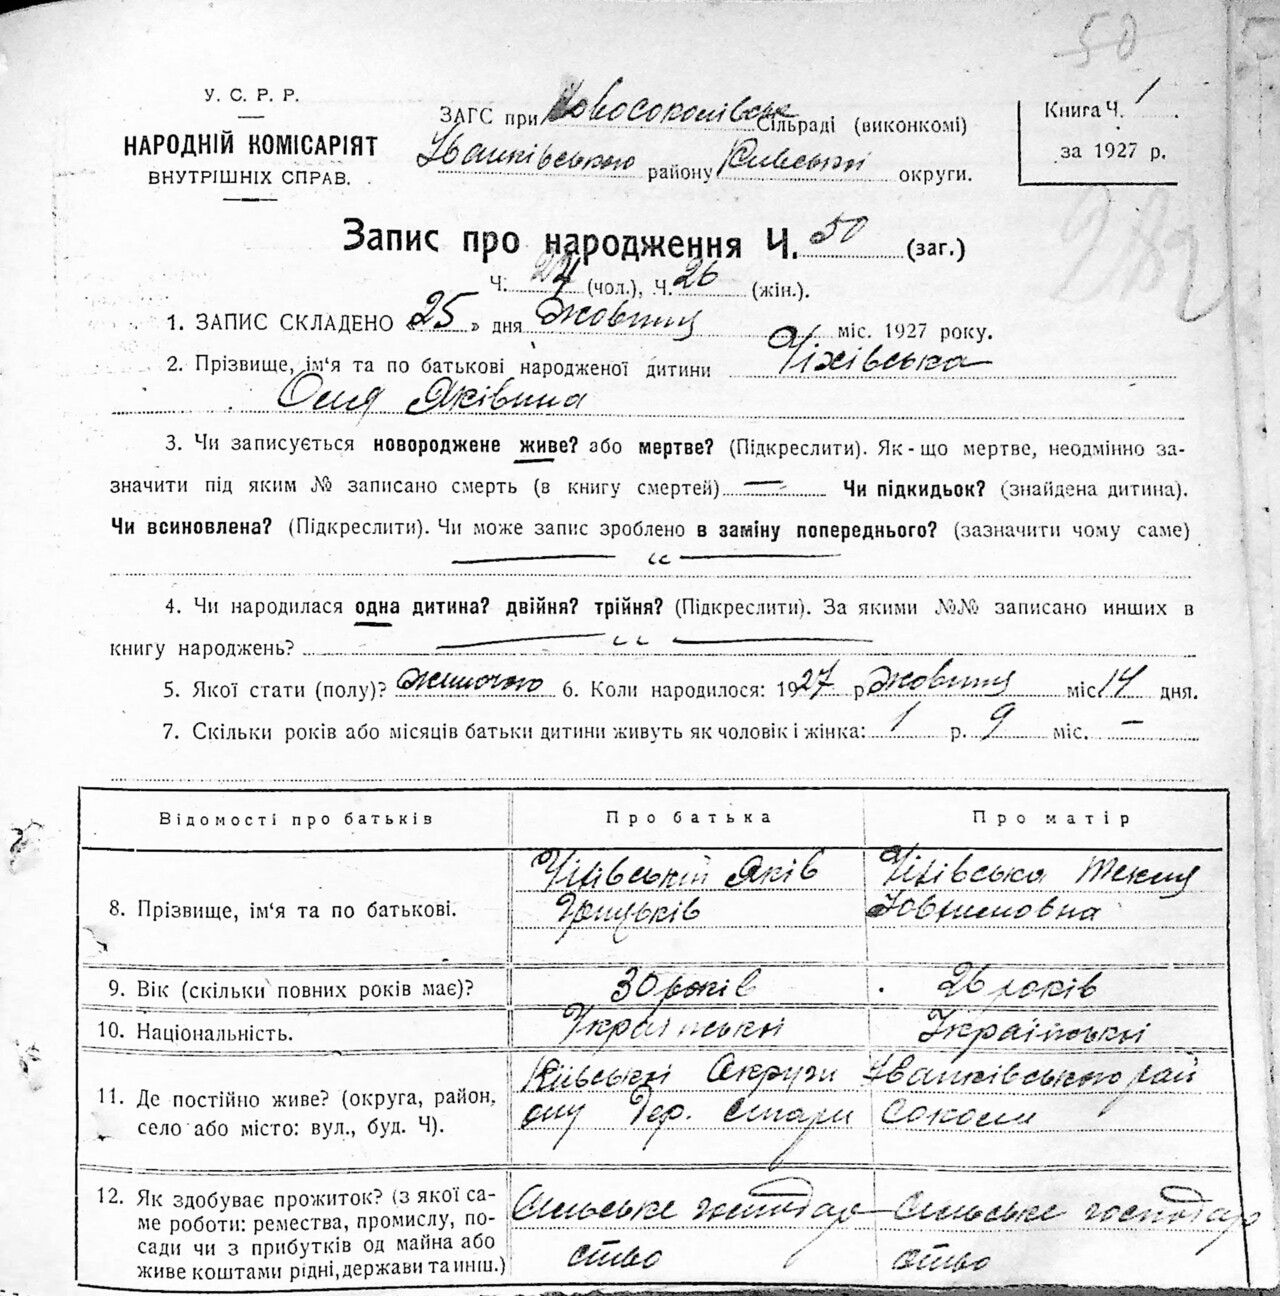 50
У. С. Р. Р.
НАРОДНІЙ КОМІСАРІЯТ
ВНУТРІШНІХ СПРАВ.
ЗАГС при Новосоколівськ Сільраді (виконкомі)
Іванківського району Київської округи.
Книга Ч. 1
за 1927 р.
Запис про народження Ч. 50 (заг.)
Ч. 24 (чол.), Ч. 26 (жін.).
1. ЗАПИС СКЛАДЕНО «25» дня Жовтня міс. 1927 року.
2. Прізвище, ім'я та по батькові народженої дитини Чіхівська
Оля Яківна
3. Чи записується новороджене живе? або мертве? (Підкреслити). Як-що мертве, неодмінно за-
значити під яким № записано смерть (в книгу смертей) — Чи підкидьок? (знайдена дитина).
Чи всиновлена? (Підкреслити). Чи може запис зроблено в заміну попереднього? (зазначити чому саме)
— " —
4. Чи народилася одна дитина? двійня? трійня? (Підкреслити). За якими №№ записано инших в
книгу народжень? — " —
5. Якої стати (полу)? жиночою 6. Коли народилося: 1927 р Жовтня міс 14 дня.
7. Скільки років або місяців батьки дитини живуть як чоловік і жінка: 1 р. 9 міс. —
Відомості про батьків Про батька Про матір
8. Прізвище, ім'я та по батькові. Чіхівський Яків Чіхівська Текля
Грицьків Овтиховна
9. Вік (скільки повних років має)? 30 років 26 років
10. Національність. Українські Українські
11. Де постійно живе? (округа, район, село або місто: вул., буд. Ч). Київські Округи Іванківського рай
ону Дер. Стари Соколи
12. Як здобуває прожиток? (з якої са-
ме роботи: ремества, промислу, по-
сади чи з прибутків од майна або
живе коштами рідні, держави та инш.)
Сильське господар Сильське господар
ство ство